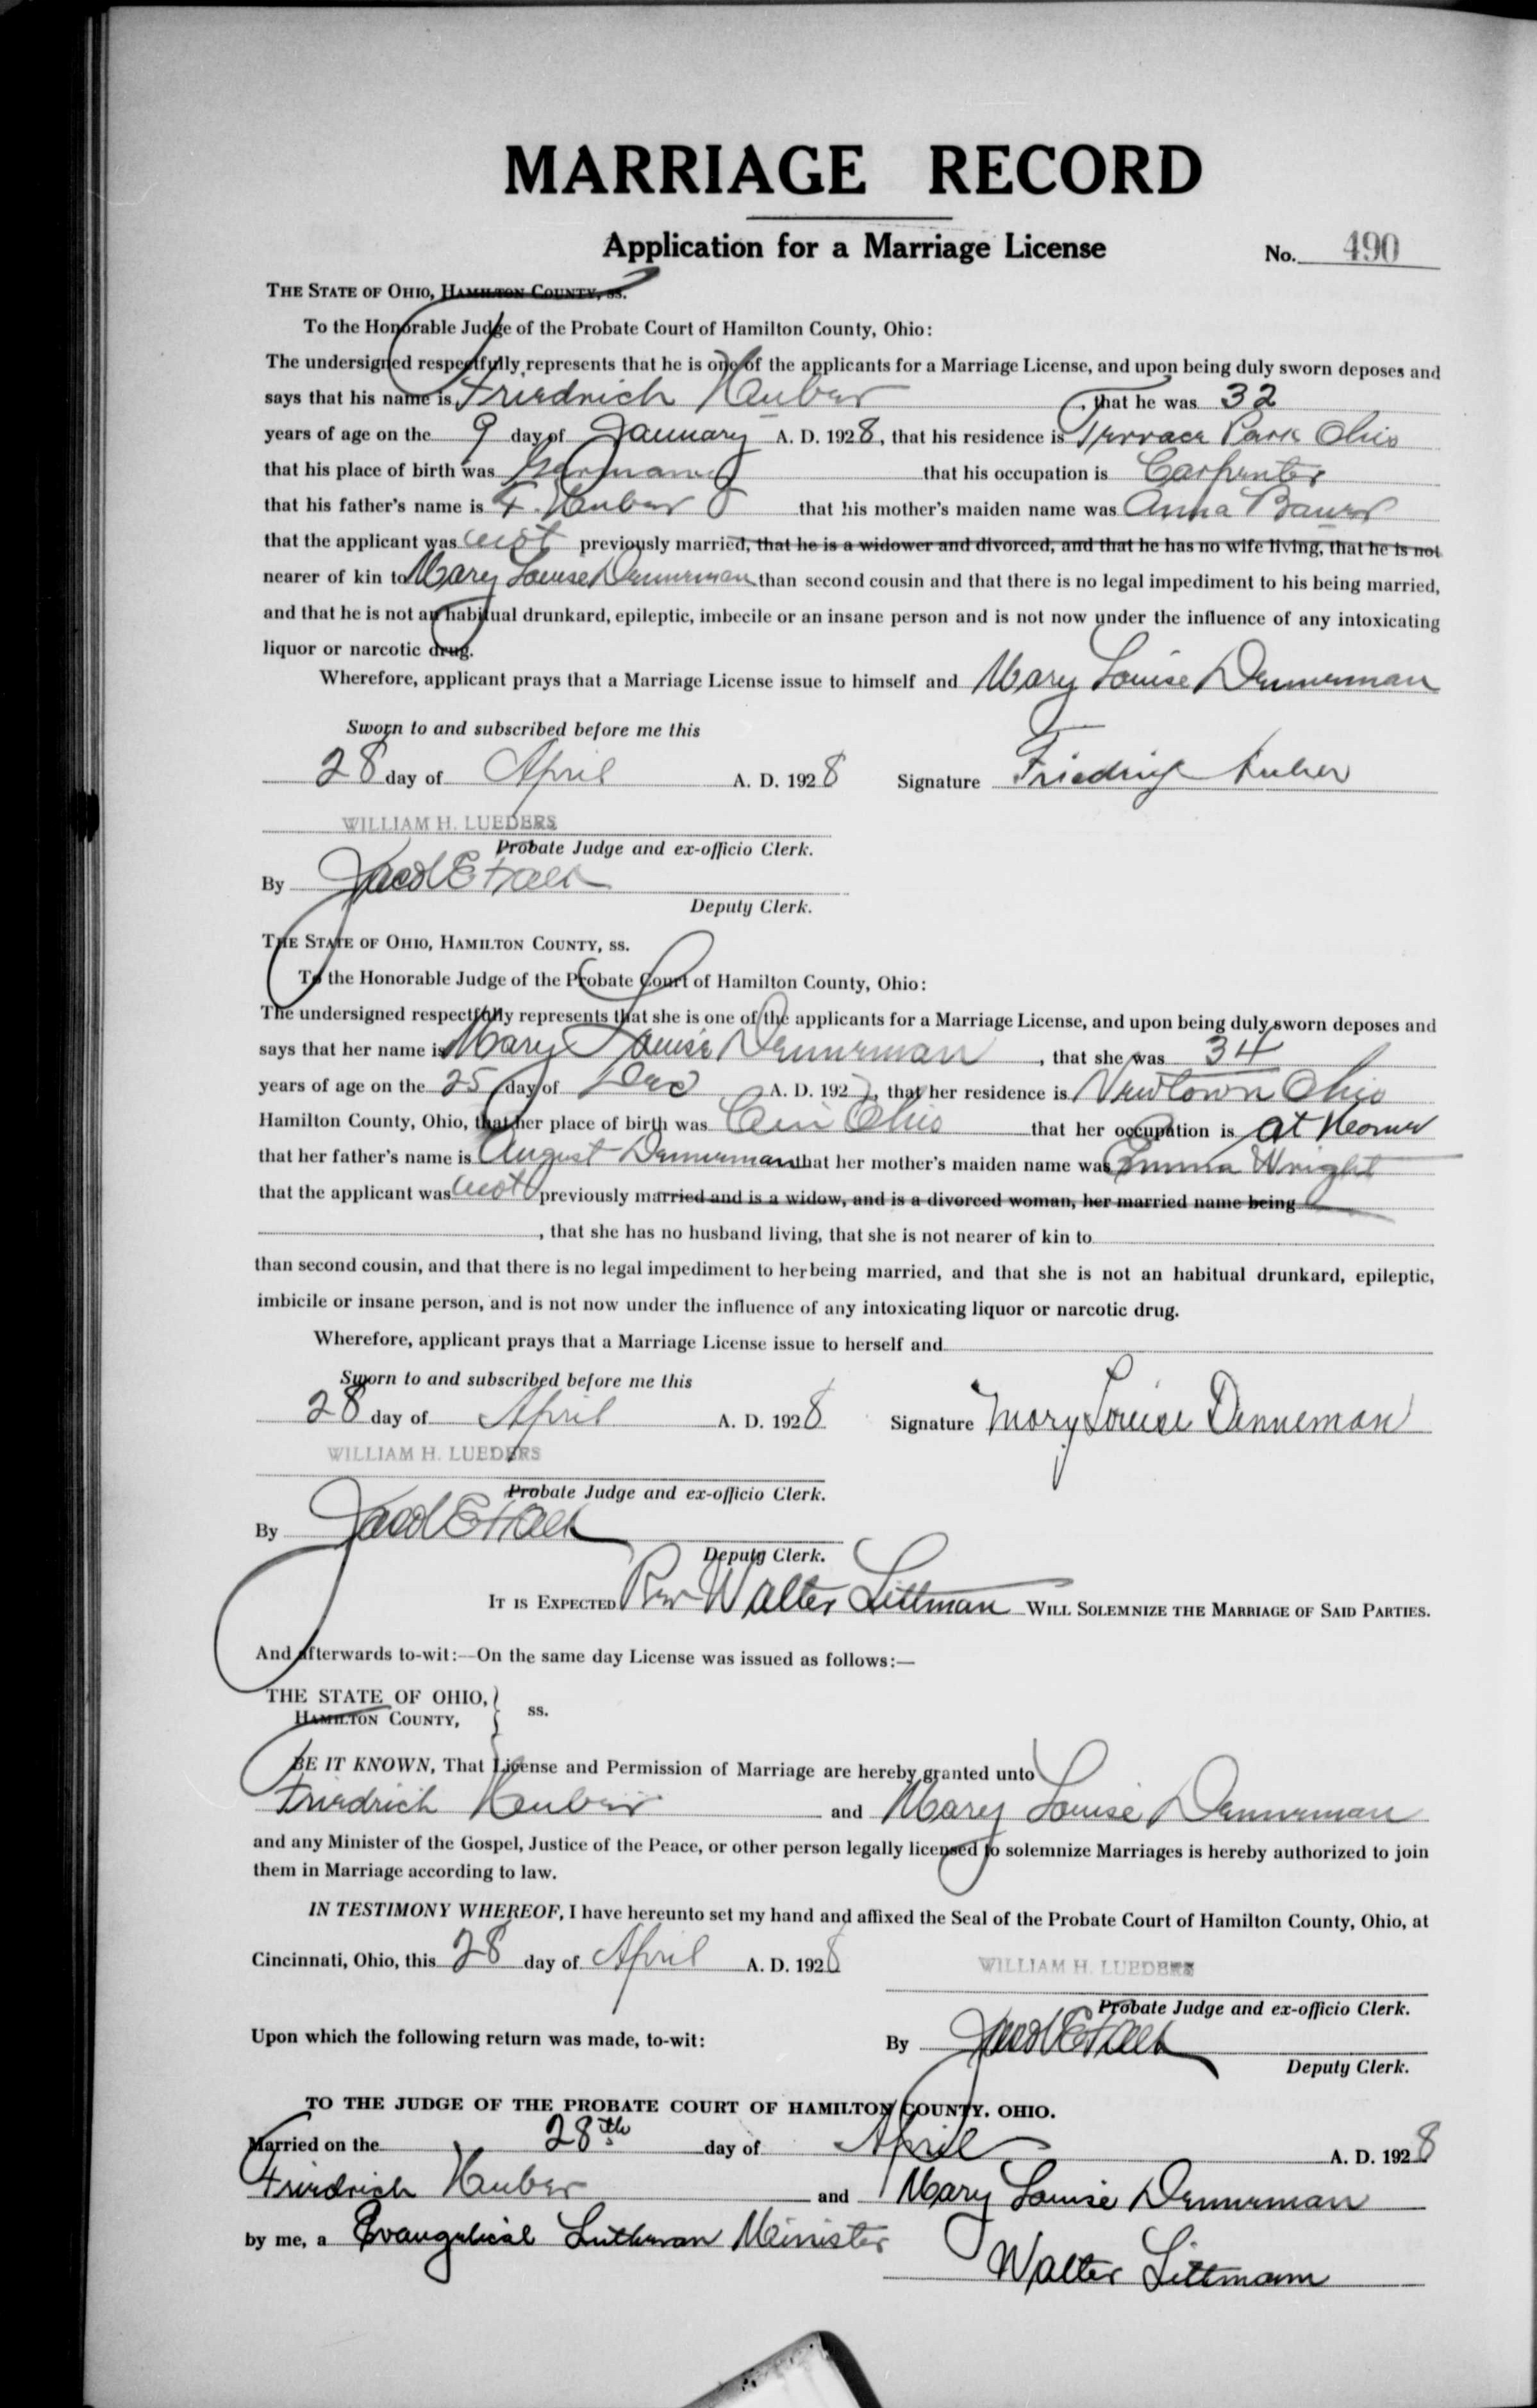 MARRIAGE RECORD
Application for a Marriage License
No. 490
THE STATE OF OHIO, HAMILTON COUNTY, SS.
To the Honorable Judge of the Probate Court of Hamilton County, Ohio:
The undersigned respectfully represents that he is one of the applicants for a Marriage License, and upon being duly sworn deposes and
says that his name is Friedrich Huber, that he was 32
years of age on the 9 day of January A. D. 1928, that his residence is Terrace Park Ohio
that his place of birth was Germany that his occupation is Carpenter
that his father's name is F. Huber that his mother's maiden name was Anna Bauer
that the applicant was not previously married, that he is a widower and divorced, and that he has no wife living, that he is not
nearer of kin to Mary Louise Denneman than second cousin and that there is no legal impediment to his being married,
and that he is not an habitual drunkard, epileptic, imbecile or an insane person and is not now under the influence of any intoxicating
liquor or narcotic drug.
Wherefore, applicant prays that a Marriage License issue to himself and Mary Louise Denneman
Sworn to and subscribed before me this
28 day of April A. D. 1928 Signature Friedrich Huber
WILLIAM H. LUEDERS
Probate Judge and ex-officio Clerk.
By
Deputy Clerk.
THE STATE OF OHIO, HAMILTON COUNTY, SS.
To the Honorable Judge of the Probate Court of Hamilton County, Ohio:
The undersigned respectfully represents that she is one of the applicants for a Marriage License, and upon being duly sworn deposes and
says that her name is Mary Louise Denneman, that she was 34
years of age on the 25 day of Dec A. D. 1927, that her residence is Newtown Ohio
Hamilton County, Ohio, that her place of birth was Cin Ohio that her occupation is at Home
that her father's name is August Denneman that her mother's maiden name was Emma Wright
that the applicant was not previously married and is a widow, and is a divorced woman, her married name being
, that she has no husband living, that she is not nearer of kin to
than second cousin, and that there is no legal impediment to her being married, and that she is not an habitual drunkard, epileptic,
imbicile or insane person, and is not now under the influence of any intoxicating liquor or narcotic drug.
Wherefore, applicant prays that a Marriage License issue to herself and
Sworn to and subscribed before me this
28 day of April A. D. 1928 Signature Mary Louise Denneman
WILLIAM H. LUEDERS
Probate Judge and ex-officio Clerk.
By
Deputy Clerk.
IT IS EXPECTED Rev Walter Littman WILL SOLEMNIZE THE MARRIAGE OF SAID PARTIES.
And afterwards to-wit:—On the same day License was issued as follows:—
THE STATE OF OHIO,
HAMILTON COUNTY, } ss.
BE IT KNOWN, That License and Permission of Marriage are hereby granted unto
Friedrich Huber and Mary Louise Denneman
and any Minister of the Gospel, Justice of the Peace, or other person legally licensed to solemnize Marriages is hereby authorized to join
them in Marriage according to law.
IN TESTIMONY WHEREOF, I have hereunto set my hand and affixed the Seal of the Probate Court of Hamilton County, Ohio, at
Cincinnati, Ohio, this 28 day of April A. D. 1928
WILLIAM H. LUEDERS
Probate Judge and ex-officio Clerk.
Upon which the following return was made, to-wit:
By
Deputy Clerk.
TO THE JUDGE OF THE PROBATE COURT OF HAMILTON COUNTY, OHIO.
Married on the 28th day of April A. D. 1928
Friedrich Huber and Mary Louise Denneman
by me, a Evangelical Lutheran Minister
Walter Littmann